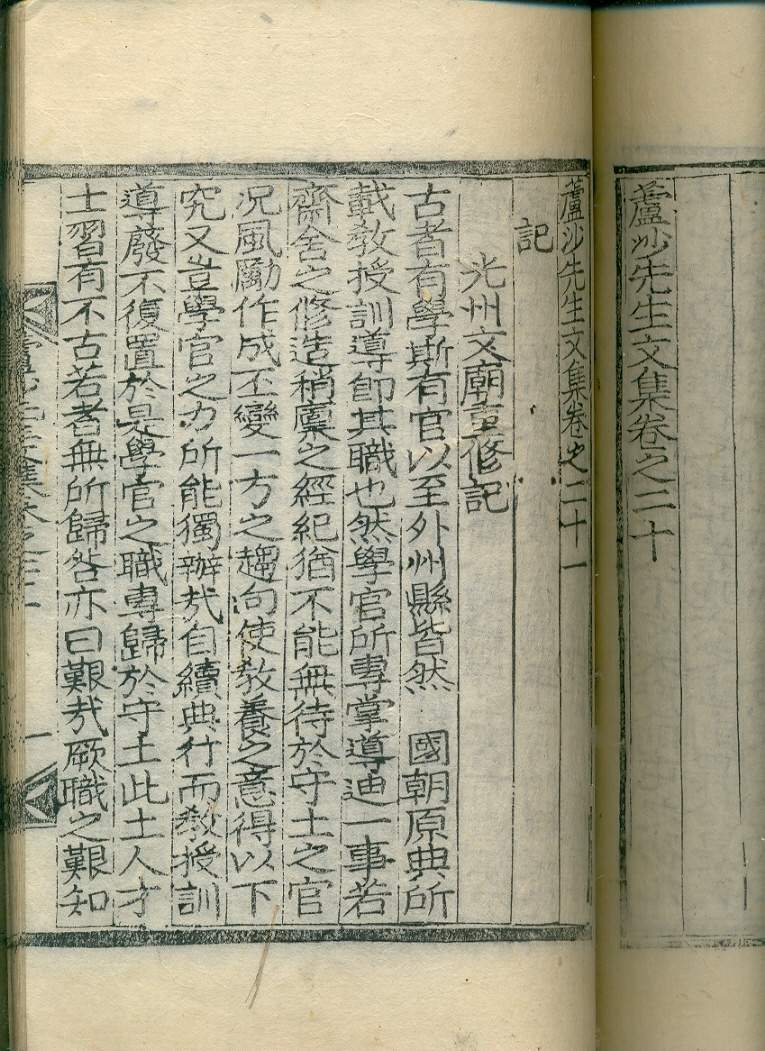 蘆沙先生文集卷之二十
蘆沙先生文集卷之二十一
記
光州文廟重修記
古者有學斯有官以至外州縣皆然　國朝原典所
載敎授訓導卽其職也然學官所專掌導迪一事若
齋舍之修造稍廩之經紀猶不能無待於守土之官
况風勵作成丕變一方之趨向使敎養之意得以下
究又豈學官之力所能獨辦㢤自續典行而敎授訓
導廢不復置於是學官之職專歸於守土此土人才
士習有不古若者無所歸咎亦曰艱㢤厥職之艱知